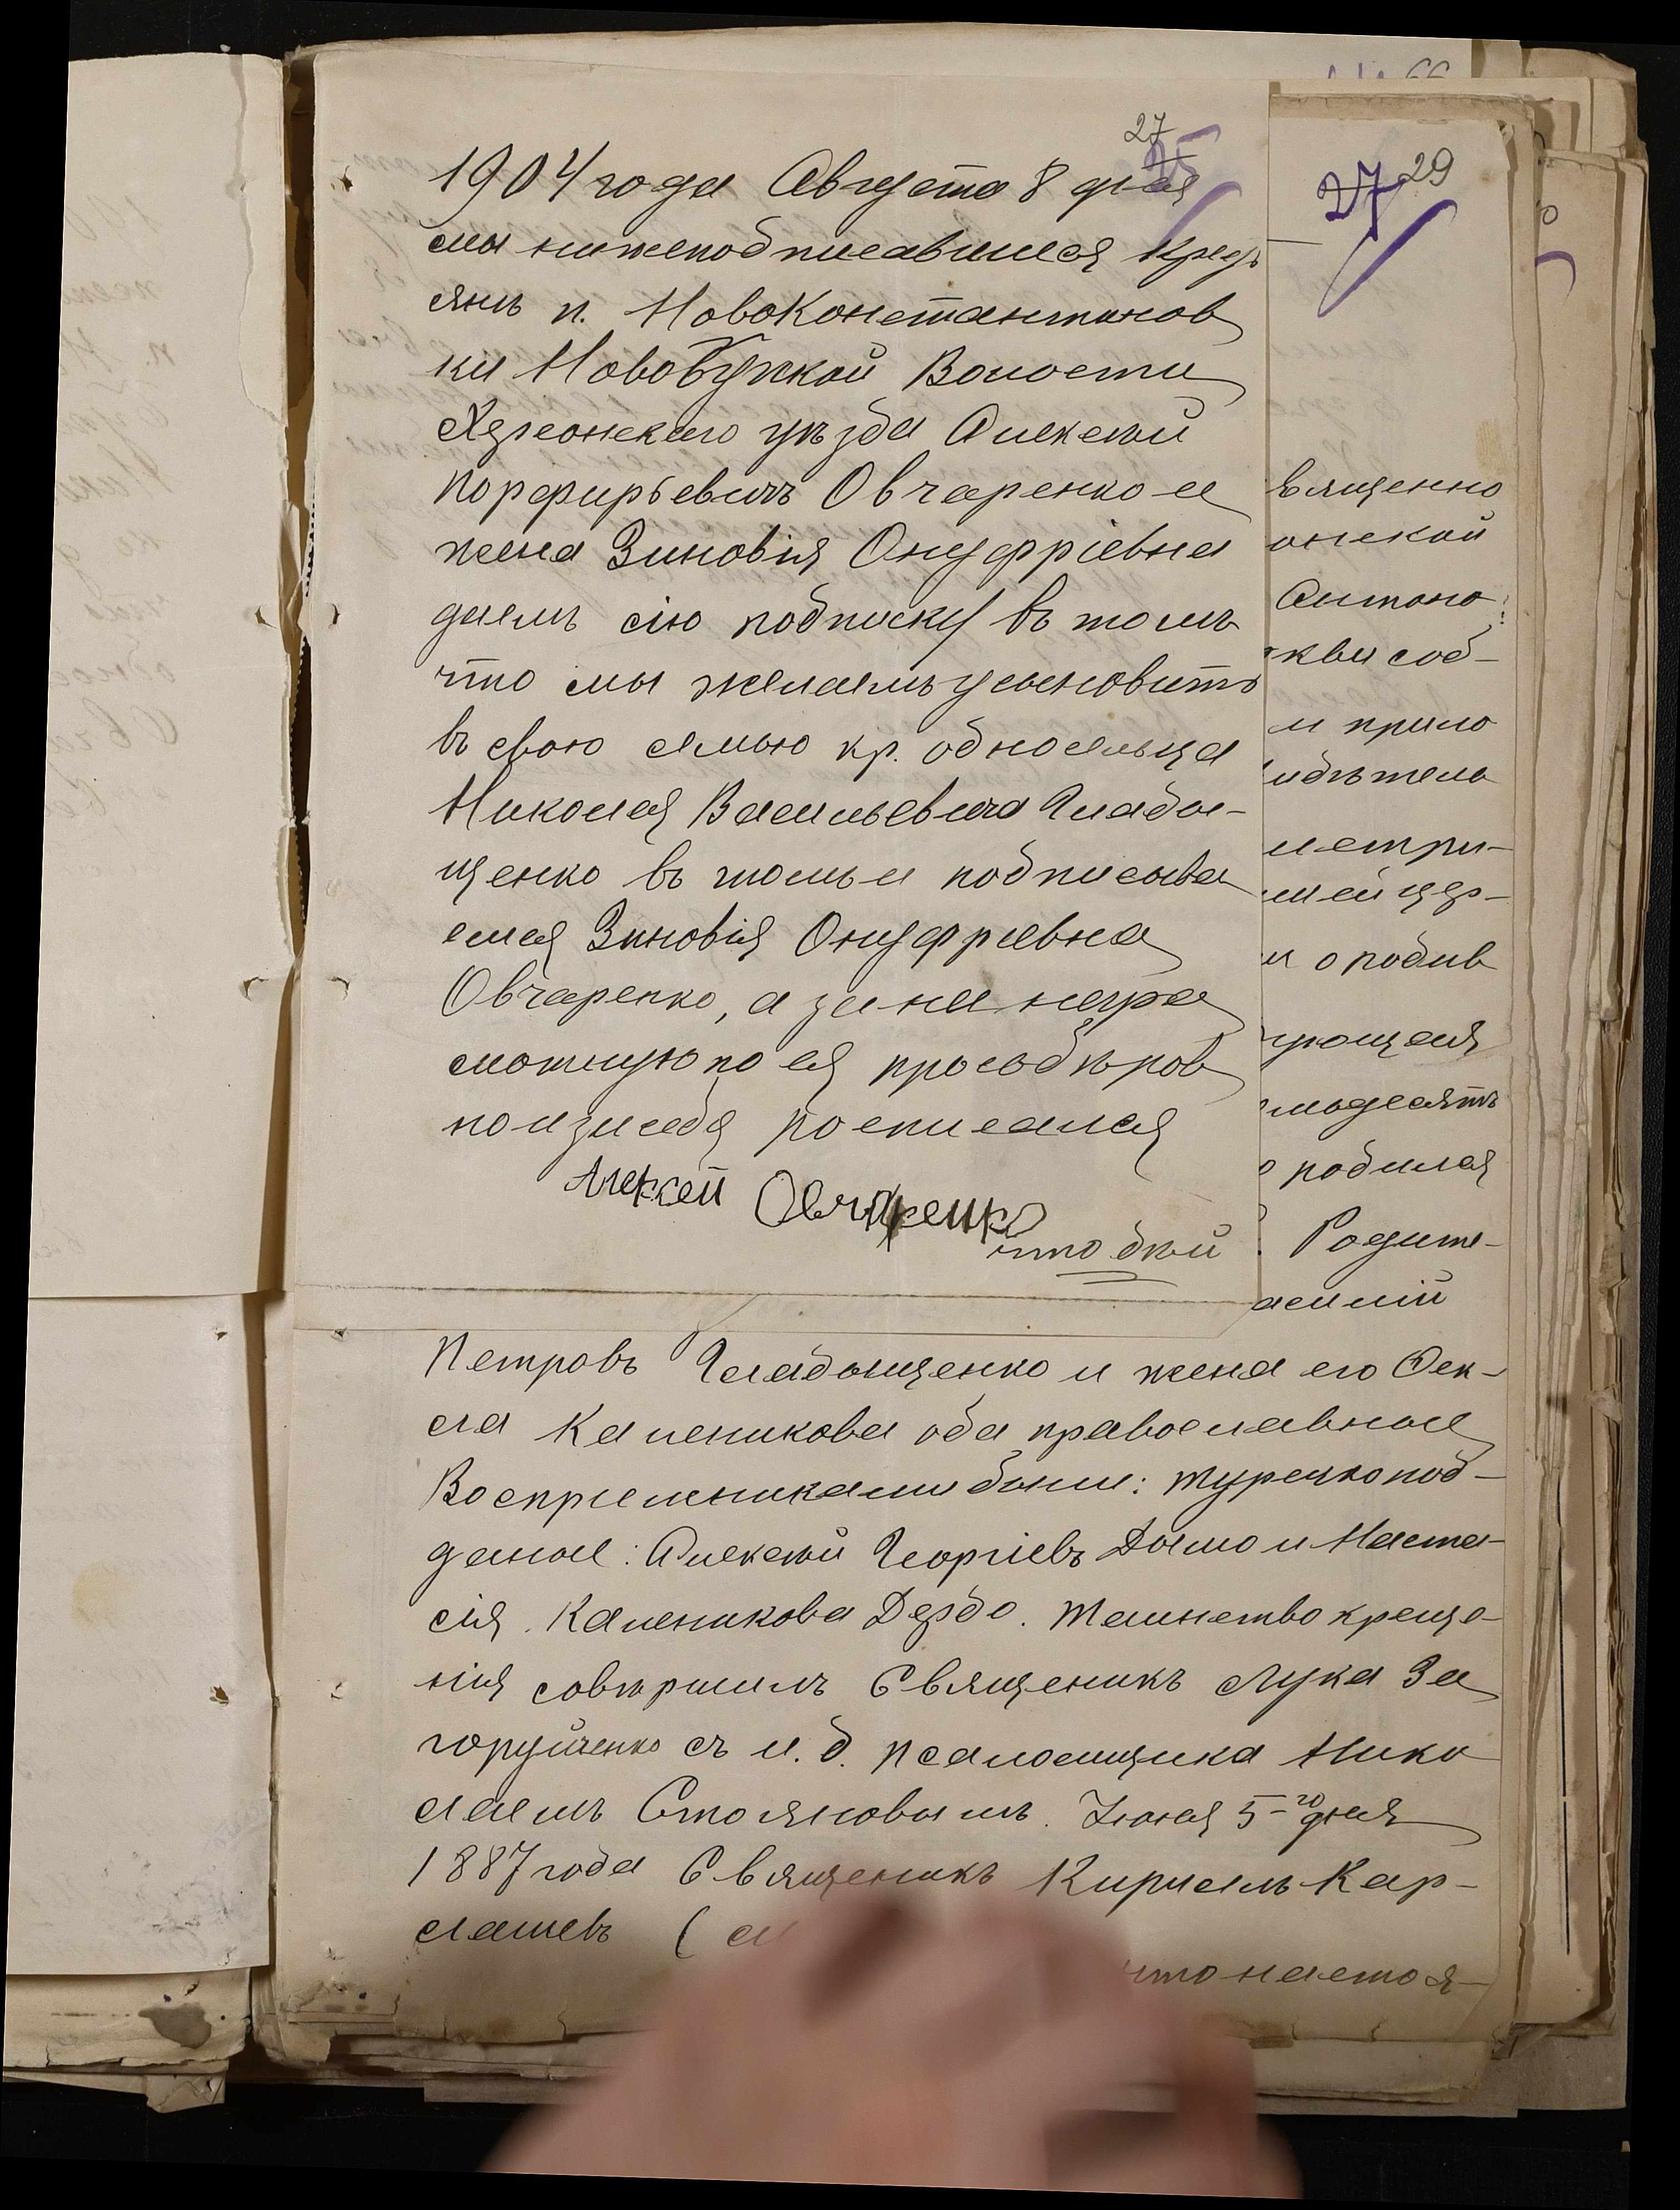 27
1904 года Августа 8 дня
мы нижеподписавшиеся крест
янъ п. Новоконстантинов
ки Новобугской Волости
Херсонскаго уѣзда Алексѣй
Порфирьевичъ Овчаренко и
жена Зиновія Онуфріевна
даемъ сію подписку въ томъ
что мы желаемъ усыновить
въ свою семью кр. односельца
Николая Васильевича Глады-
щенко въ томъ и подписыва
емся Зиновія Онуфріевна
Овчаренко, а за не негра
мотную по ея просьбѣ
по и за себя росписался
Алексей Овчаренко
27 29
вященно
онской
Антоно
кви соб-
и прило
идѣтель
метри-
шей цер-
и о родив
ующая
мьдесятъ
родился
Родите-
асилій
Петровъ Гладыщенко и жена его Фек-
ла Каленикова оба православные
Воспріемниками были: турецкопод-
даные: Алексѣй Георгіевъ Дымо и Наста-
сія Каленикова Дербо. Таинство креще-
нія совершилъ Священикъ Лука За
горуйченко съ и. д. псаломщика Нико
лаемъ Стояновымъ. Іюня 5-го дня
1887 года Священикъ Кирилъ Кар-
лашевъ (
что настоя-